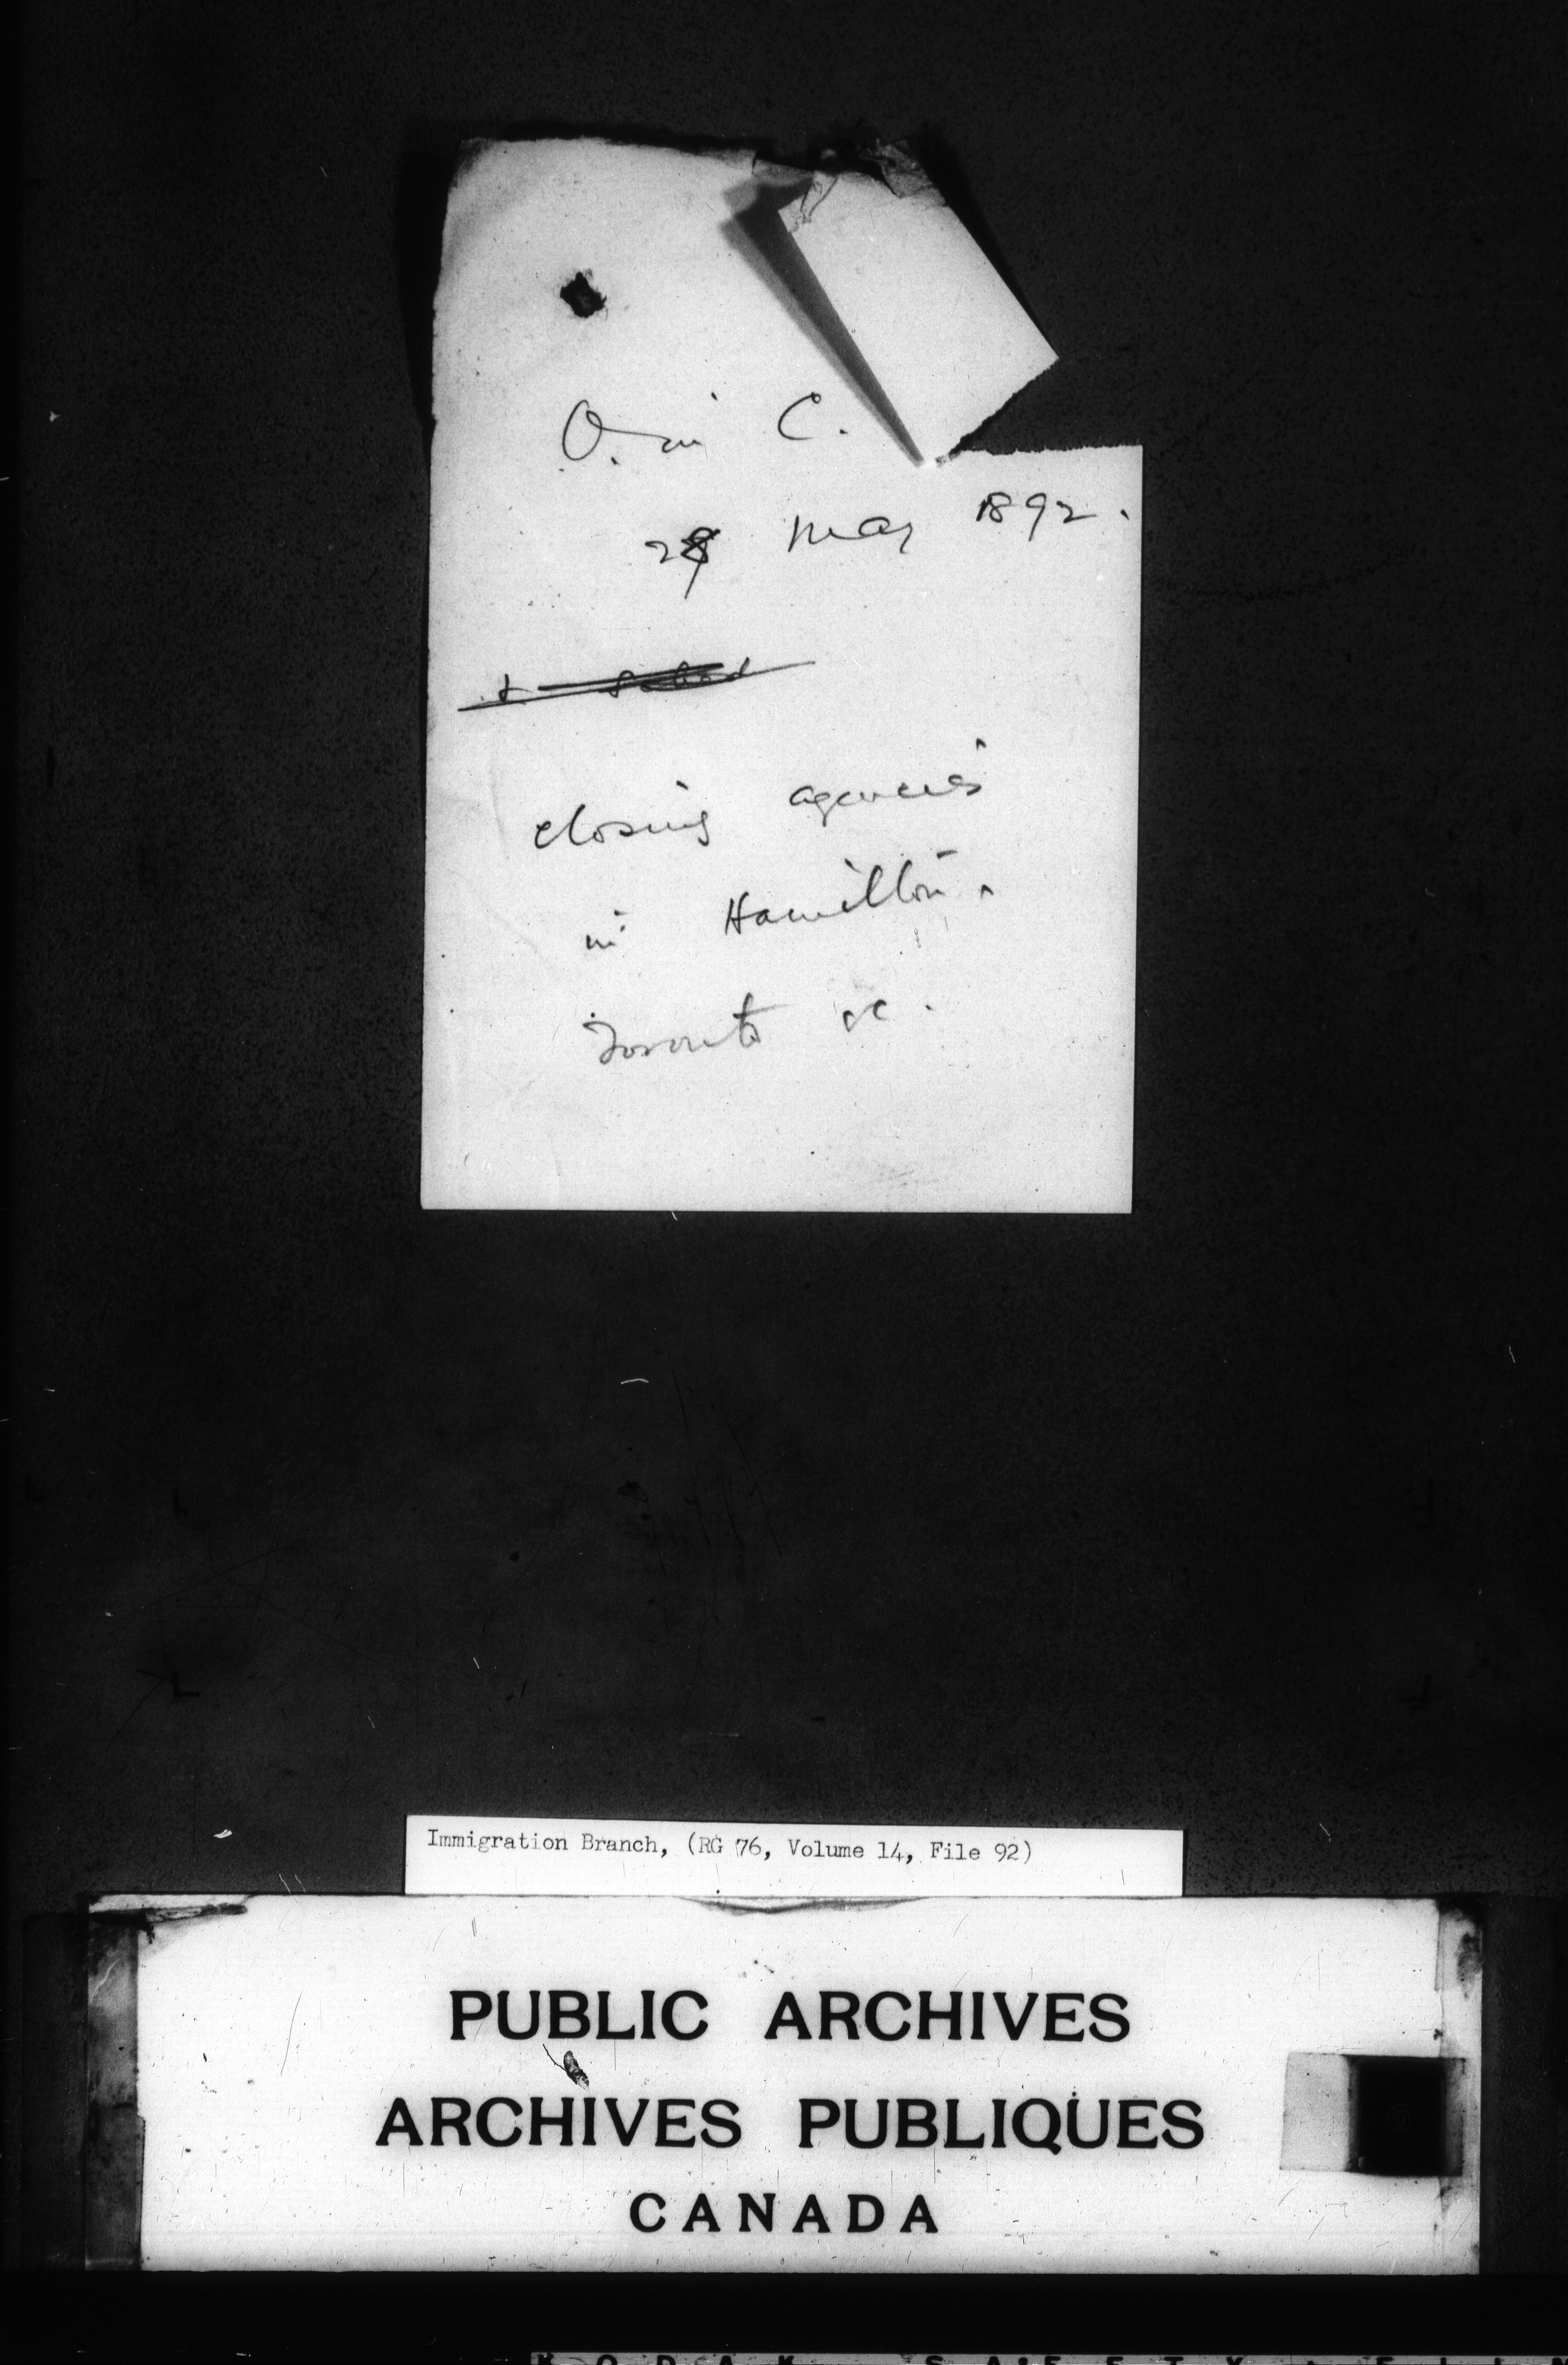 O. in C.
May 1892.
closing agencies
in Hamilton.
Toronto &c.
Immigration Branch, (RG 76, Volume 14, File 92)
PUBLIC ARCHIVES
ARCHIVES PUBLIQUES
CANADA